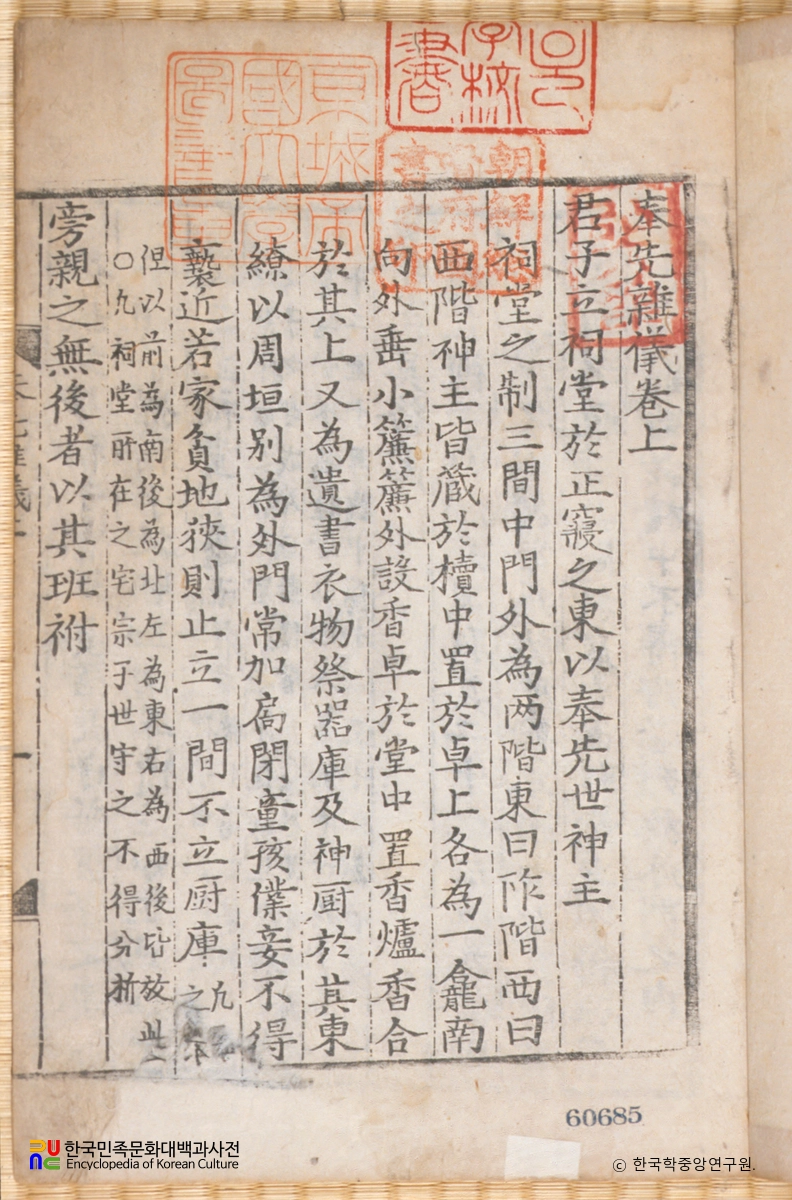 奉先雜儀卷上
君子立祠堂於正寢之東以奉先世神主
祠堂之制三間中門外為两階東曰阼階西曰
西階神主皆藏於櫝中置於卓上各為一龕南
向外垂小簾簾外設香卓於堂中置香爐香合
於其上又為遺書衣物祭器庫及神厨於其東
繚以周垣别為外門常加扃閉童孩僕妾不得
褻近若家貧地狹則止立一間不立厨庫
九
之
但以前為南後為北左為東右為西後皆放此
○九祠堂所在之宅宗子世守之不得分析
旁親之無後者以其班祔
朝鮮
京城帝
國大學
圖書章
60685
한국민족문화대백과사전
Encyclopedia of Korean Culture
ⓒ 한국학중앙연구원.